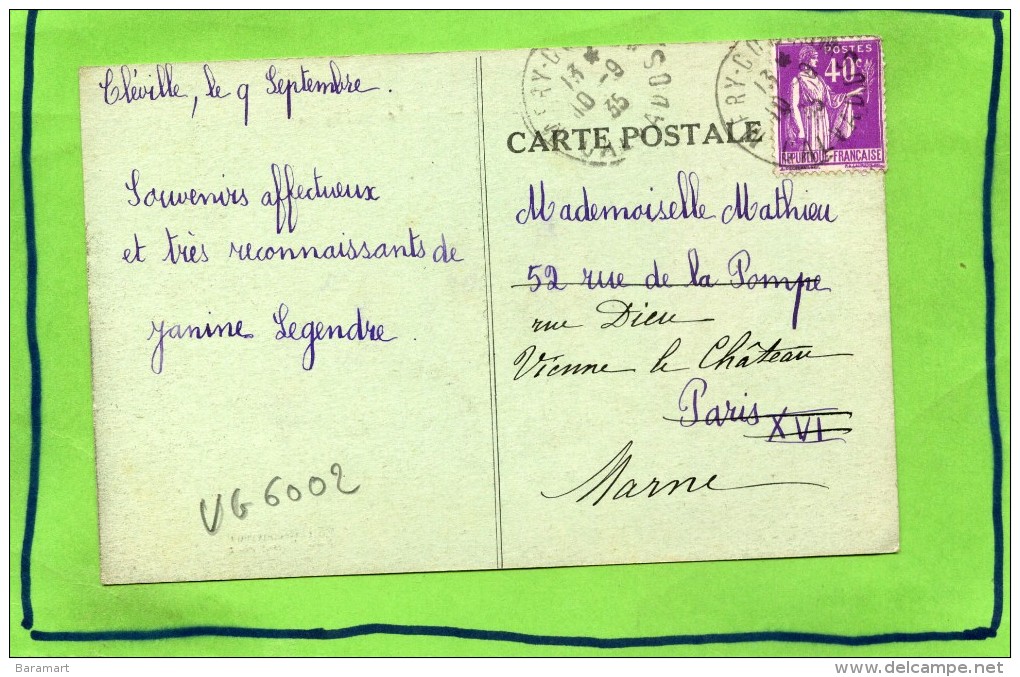 Cléville, le 9 Septembre.
Souvenirs affectueux
et très reconnaissants de
Janine Legendre.
VG6002
CARTE POSTALE
POSTES
40c
REPUBLIQUE FRANÇAISE
13 * -9
10 35
CALVADOS
Mademoiselle Mathieu
52 rue de la Pompe
rue Dieu
Vienne le Château
Paris XVI
Marne
Baramart
www.delcampe.net